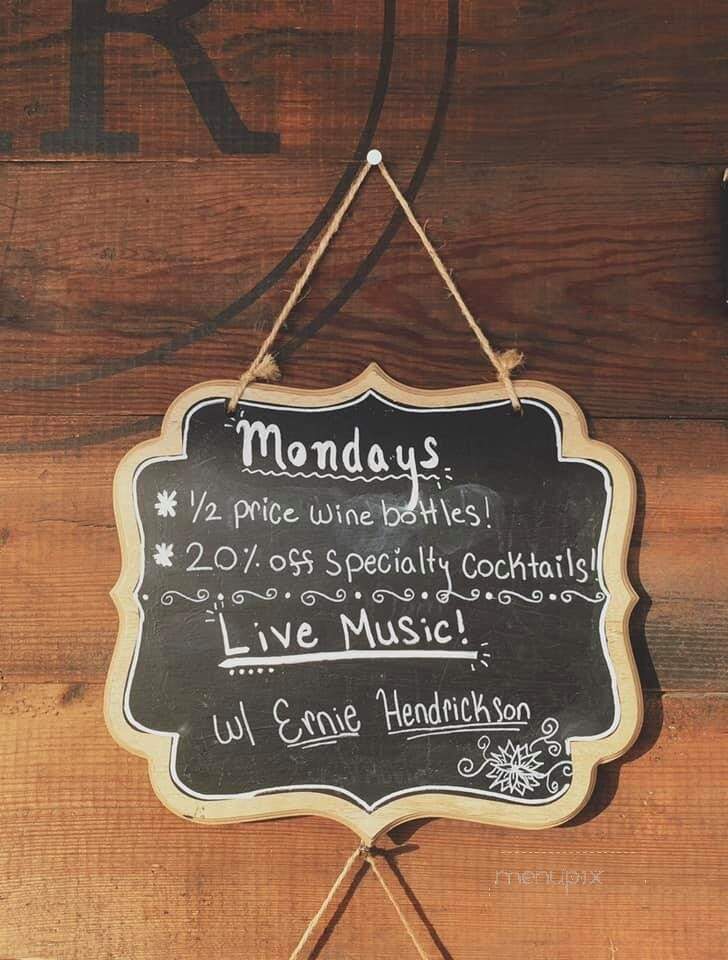 R
Mondays
* 1/2 price wine bottles!
* 20% off Specialty Cocktails!
Live Music!
w/ Ernie Hendrickson
menupix